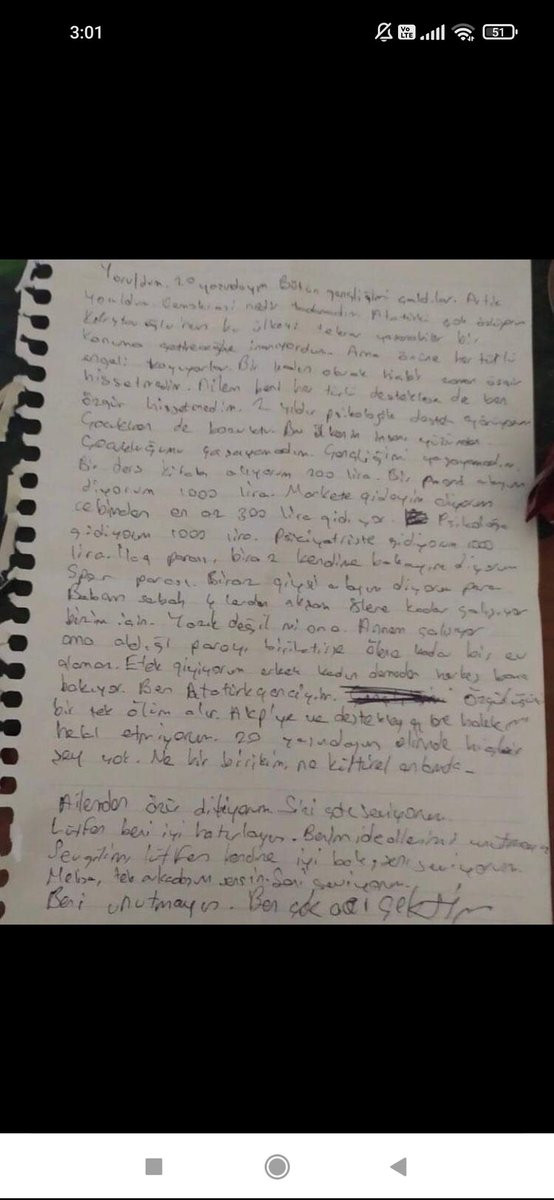 3:01
51
Yoruldum. 20 yaşındayım Bütün gençliğimi çaldılar. Artık
yoruldum. Demokrasi nedir tadamadım. Atatürkü çok özlüyorum
Kılıçdaroğlu'nun bu ülkeyi tekrar yaşanabilir bir
konuma getireceğine inanıyordum. Ama önüne her türlü
engeli koyuyorlar. Bir kadın olarak hiçbir zaman özgür
hissetmedim. Ailem beni her türlü desteklese de ben
özgür hissetmedim. 2 yıldır psikolojik destek görüyorum
Çocukken de bozuktu. Bu ülkenin insanı yüzünden
Çocukluğumu yaşayamadım. Gençliğimi yaşayamadım.
Bir ders kitabı alıyorum 200 lira. Bir alayım
diyorum 1000 lira. Markete gideyim diyorum
cebimden en az 300 lira gidiyor. Psikoloğa
gidiyorum 1000 lira. Psikiyatriste gidiyorum 1000
lira. İlaç parası, biraz kendine bakayım diyorum
Spor parası. Biraz giysi alayım diyorum para
Babam sabah lardan akşam lere kadar çalışıyor
bizim için. Yazık değil mi ona. Annem çalışıyor
ama aldığı parayı biriktirse ölene kadar bir ev
alamaz. Etek giyiyorum erkek kadın demeden herkes bana
bakıyor. Ben Atatürk genciyim. Özgürlüğün
bir tek ölüm alır. Akp'ye ve destekleyen halka
helal etmiyorum. 20 yaşındayım elimde hiçbir
şey yok. Ne bir birikim, ne kültürel
Ailemden özür diliyorum. Sizi çok seviyorum.
Lütfen beni iyi hatırlayın. Benim ideallerimi unutmayın
Sevgilim, lütfen kendine iyi bak, seni seviyorum.
tek arkadaşım sensin. Seni seviyorum.
Beni unutmayın. Ben çok acı çektim